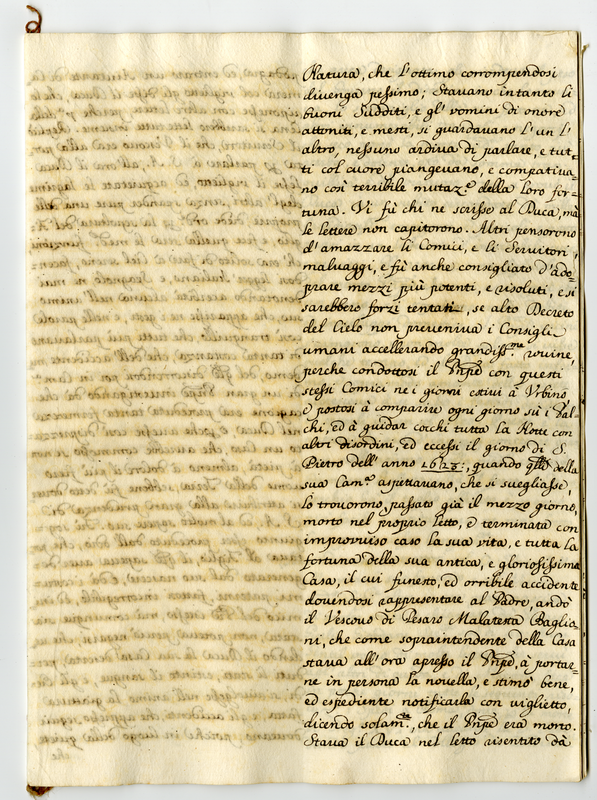 Natura, che l'ottimo corrompendosi
divenga pessimo; Stavano intanto li
buoni Sudditi, e gl' uomini di onore
attoniti, e mesti, si guardavano l' un l'
altro, nessuno ardiva di parlare, e tut=
ti col cuore piangevano, e compativa=
no così terribile mutaz.e della loro for=
tuna. Vi fù chi ne scrisse al Duca, mà
le lettere non capitorono. Altri pensorono
d'amazzare li Comici, e li Servitori
malvaggi, e fù anche consigliato d'ado=
prare mezzi più potenti, e risoluti, e si
sarebbero forzi tentati, se alto Decreto
del Cielo non preveniva i Consigli
umani accellerando grandiss.me rovine,
perche condottosi il Pnpe con questi
stessi Comici ne i giorni estivi à Urbino,
e postosi à comparire ogni giorno sù i Pal=
chi, ed à guidar cocchi tutta la Notte con
altri disordini, ed eccessi il giorno di S.
Pietro dell' anno 1623:, quando qlli della
sua Cam.a aspettavano, che si svegliasse,
lo trovorono, passato già il mezzo giorno,
morto nel proprio letto, e terminata con
improvviso caso la sua vita, e tutta la
fortuna della sua antica, e gloriosissima
Casa, il cui funesto, ed orribile accidente
dovendosi rappresentare al Padre, andò
il Vescovo di Pesaro Malatesta Baglio=
ni, che come sopraintendente della Casa
stava all' ora apresso il Pnpe, à portar=
ne in persona la novella, e stimò bene,
ed espediente notificarla con viglietto,
dicendo solam.te, che il Pnpe era morto.
Stava il Duca nel letto risentito dà